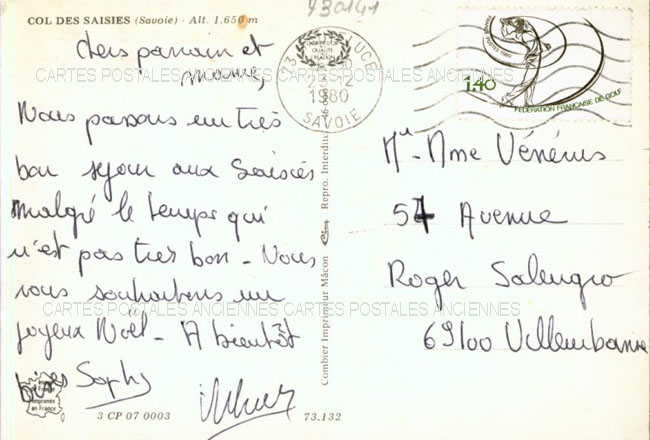 COL DES SAISIES (Savoie) - Alt. 1.650 m
930141
Chers parrain et
mamie,
Nous passons un très
bon séjour aux Saisies
malgré le temps qui
n'est pas très bon - Nous
vous souhaitons un
joyeux Noël - A bientôt
bises Sophy
Imprimé en France
3 CP 07 0003
73.132
Combier Imprimeur Mâcon
Repro. Interdite
73
LUCE
1980
SAVOIE
1,40
FEDERATION FRANÇAISE DE GOLF
Mr - Mme Vénénus
54 Avenue
Roger Salengro
69100 Villeurbanne
CARTES POSTALES ANCIENNES CARTES POSTALES ANCIENNES
CARTES POSTALES ANCIENNES CARTES POSTALES ANCIENNES